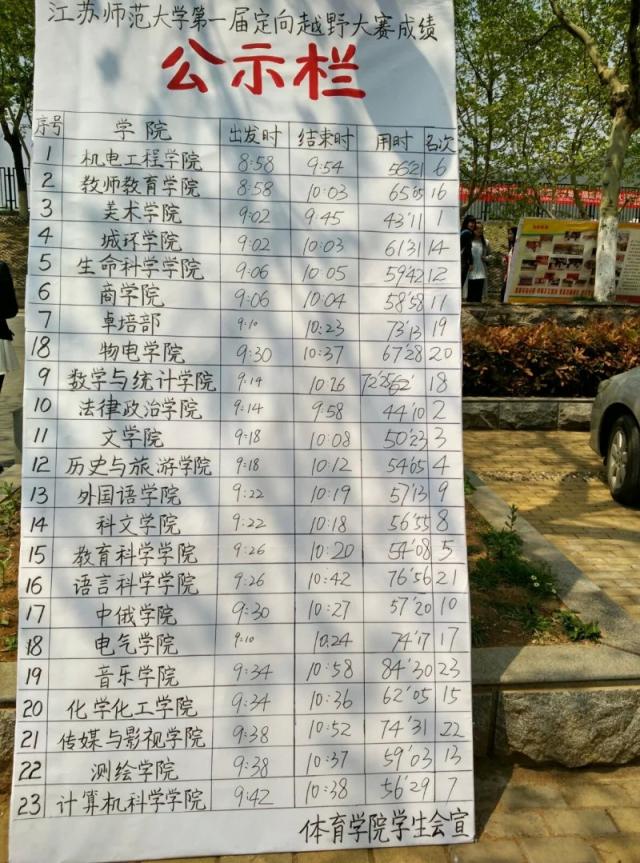 江苏师范大学第一届定向越野大赛成绩
公示栏
序号 学院 出发时 结束时 用时 名次
1 机电工程学院 8:58 9:54 56'21 6
2 教师教育学院 8:58 10:03 65'05 16
3 美术学院 9:02 9:45 43'11 1
4 城环学院 9:02 10:03 61'31 14
5 生命科学学院 9:06 10:05 59'42 12
6 商学院 9:06 10:04 58'58 11
7 卓培部 9:10 10:23 73'13 19
18 物电学院 9:30 10:37 67'28 20
9 数学与统计学院 9:14 10:26 18
10 法律政治学院 9:14 9:58 44'10 2
11 文学院 9:18 10:08 50'23 3
12 历史与旅游学院 9:18 10:12 54'05 4
13 外国语学院 9:22 10:19 57'13 9
14 科文学院 9:22 10:18 56'55 8
15 教育科学学院 9:26 10:20 54'08 5
16 语言科学学院 9:26 10:42 76'56 21
17 中俄学院 9:30 10:27 57'20 10
18 电气学院 9:10 10:24 74'17 17
19 音乐学院 9:34 10:58 84'30 23
20 化学化工学院 9:34 10:36 62'05 15
21 传媒与影视学院 9:38 10:52 74'31 22
22 测绘学院 9:38 10:37 59'03 13
23 计算机科学学院 9:42 10:38 56'29 7
体育学院学生会宣